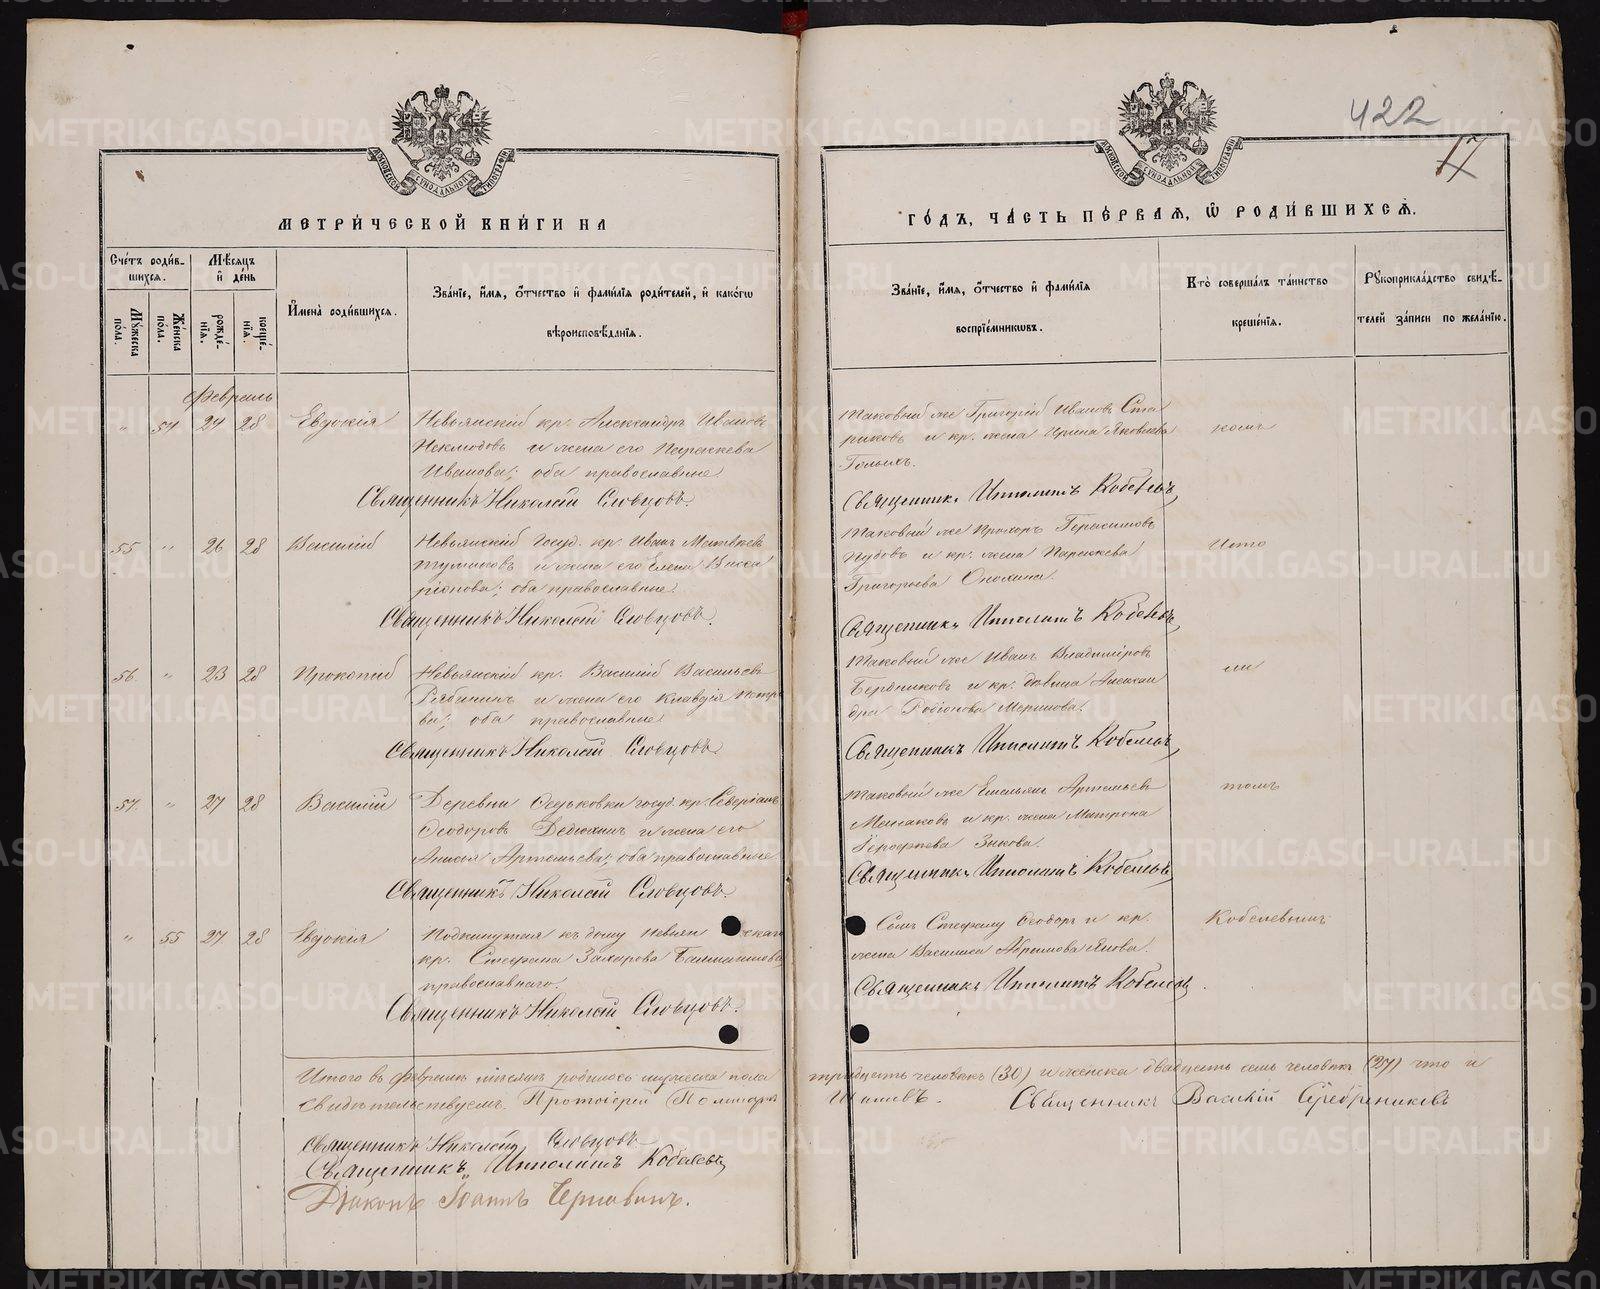 422
17
МЕТРИЧЕСКОЙ КНИГИ НА
ГОДЪ, ЧАСТЬ ПЕРВАЯ, Ѡ РОДИВШИХСЯ.
Счетъ родившихся.
Мужеска пола.
Женска пола.
Мѣсяцъ и день
рожденія.
крещенія.
Имена родившихся.
Званіе, имя, отчество и фамилія родителей, и какогѡ
вѣроисповѣданія.
Званіе, имя, отчество и фамилія
воспріемникѡвъ.
Кто совершалъ таинство
крещенія.
Рукоприкладство свидѣ-
телей записи по желанію.
Февраль
" 54 24 28 Евдокія Невьянскій кр. Александръ Ивановъ
Неклюдовъ и жена его Параскева
Иванова; оба православные
Священникъ Николай Словцовъ.
Таковый же Григорій Ивановъ Ста
риковъ и кр. жена Ирина Яковлева
Голыхъ.
Священникъ Ипполитъ Кобелевъ
55 " 26 28 Василій Невьянскій госуд. кр. Иванъ Матвѣевъ
и жена его Елена Висса
ріонова; оба православные
Священникъ Николай Словцовъ.
Таковый же Прохоръ Герасимовъ
и кр. жена Параскева
Григорьева
Священникъ Ипполитъ Кобелевъ
56. " 23 28 Прокопій Невьянскій кр. Василій Васильевъ
Рябининъ и жена его Клавдія Петро
ва; оба православные
Священникъ Николай Словцовъ
Таковый же Иванъ Владиміровъ
Бердниковъ и кр. дѣвица Алексан
дра Родіонова
Священникъ Ипполитъ Кобелевъ
57. " 27 28 Василій Деревни Осиновки госуд. кр. Северіанъ
Ѳеодоровъ Дедюхинъ и жена его
Анисія Артемьева; оба православные
Священникъ Николай Словцовъ.
Таковый же Емельянъ Артемьевъ
и кр. жена Матрона
Ерофеева Зыкова.
Священникъ Ипполитъ Кобелевъ
томъ
Кобелевымъ
" 55 27 28 Евдокія Подкинутая къ дому Невьянскаго
кр. Стефана Захарова
православнаго.
Священникъ Николай Словцовъ.
Сынъ Стефану Ѳеодоръ и кр.
жена Василиса Абрамова
Священникъ Ипполитъ Кобелевъ
Итого въ Февралѣ мѣсяцѣ родилось мужеска пола тридцать человѣкъ (30) и женска двадцать семь человѣкъ (27) что и
свидѣтельствуемъ. Протоіерей
Священникъ Василій Серебрениковъ
Священникъ Николай Словцовъ
Священникъ Ипполитъ Кобелевъ
Діаконъ Іоаннъ Чернавинъ.
METRIKI.GASO-URAL.RU